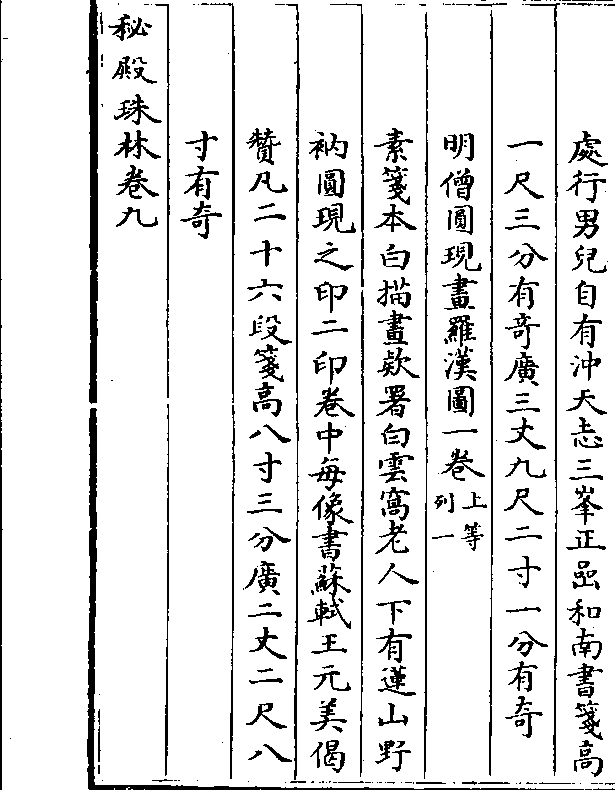 處行男兒自有沖天志三峯正嵒和南書箋高
一尺三分有竒廣三丈九尺二寸一分有竒
明僧圓現畫羅漢圖一卷上等列一
素箋本白描畫欵署白雲窩老人下有蓮山野
衲圓現之印二印卷中每像書蘇軾王元美偈
贊凡二十六段箋高八寸三分廣二丈二尺八
寸有奇
秘殿珠林卷九